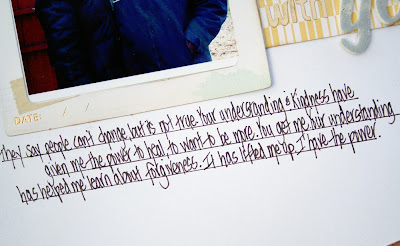 with
DATE: / /
They say people can't change but its not true. Your understanding & kindness have
given me the power to heal, to want to be more. You get me. Your understanding
has helped me learn about forgiveness. It has lifted me up. I have the power.